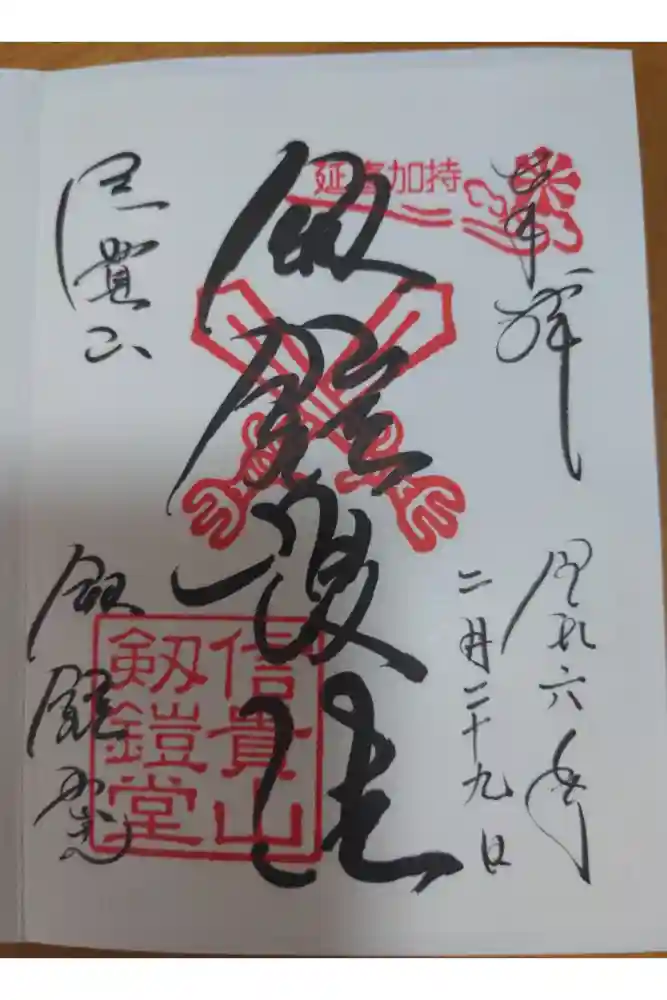 奉拝
延喜加持
令和六年
二月二十九日
剱鎧護法
信貴山
剱鎧堂
信貴山
剱鎧堂